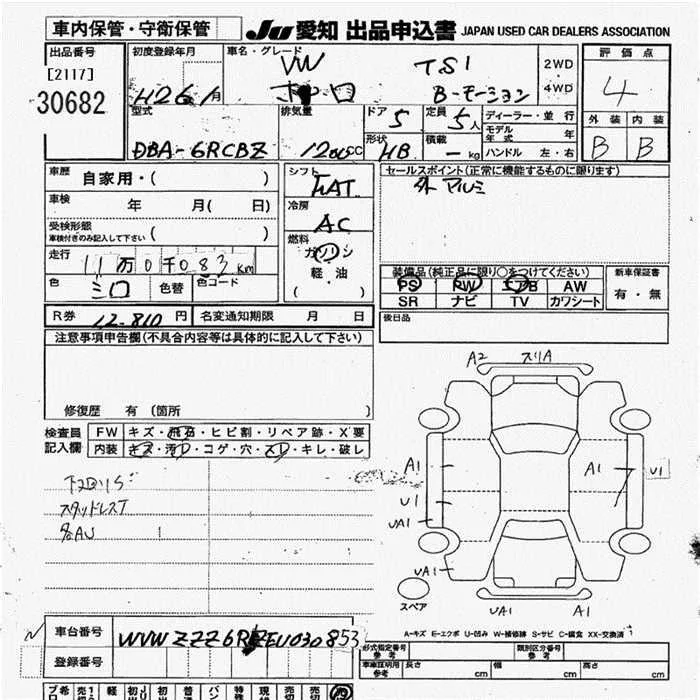 車内保管・守衛保管 JU 愛知 出品申込書 JAPAN USED CAR DEALERS ASSOCIATION
出品番号 初度登録年月 車名・グレード 評価点
[2117] VW TSI 2WD
30682 H26 月 ポロ B-モーション 4WD 4
型式 排気量 ドア 5 定員 5人 ディーラー・並行 外装 内装
モデル年式 年
DBA-6RCBZ cc 形状 HB 積載 - kg ハンドル 左・右 B B
車歴 自家用・( ) シフト セールスポイント(正常に機能するものに限ります)
AT 外 アルミ
車検 年 月( 日) 冷房
AC
受検形態
車検付きのみ記入して下さい ( ) 燃料
走行 11万0千083km ガソリン
軽・油
( )
色 シロ 色替 色コード
装備品(純正品に限り○をつけてください) 新車保証書
PS PW エアB AW 有・無
SR ナビ TV カワシート
R券 12.810 円 名変通知期限 月 日 後日品
注意事項申告欄(不具合内容等は具体的に記入して下さい)
修復歴 有 (箇所 )
検査員記入欄 FW キズ・飛石・ヒビ割・リペア跡・X要
内装 キズ・汚レ・コゲ・穴・スレ・キレ・破レ
スタッドレスT
A2 スリA
A1 A1 U1
U1
UA1
UA1
スペア UA1 A1
A-キズ E-エクボ U-凹み W-補修跡 S-サビ C-腐食 XX-交換済
車台番号 WVWZZZ6RZEU030853
登録番号
形式指定番号 参考 類別区分番号 参考
車庫証明用 参考 長さ cm 幅 cm 高さ cm